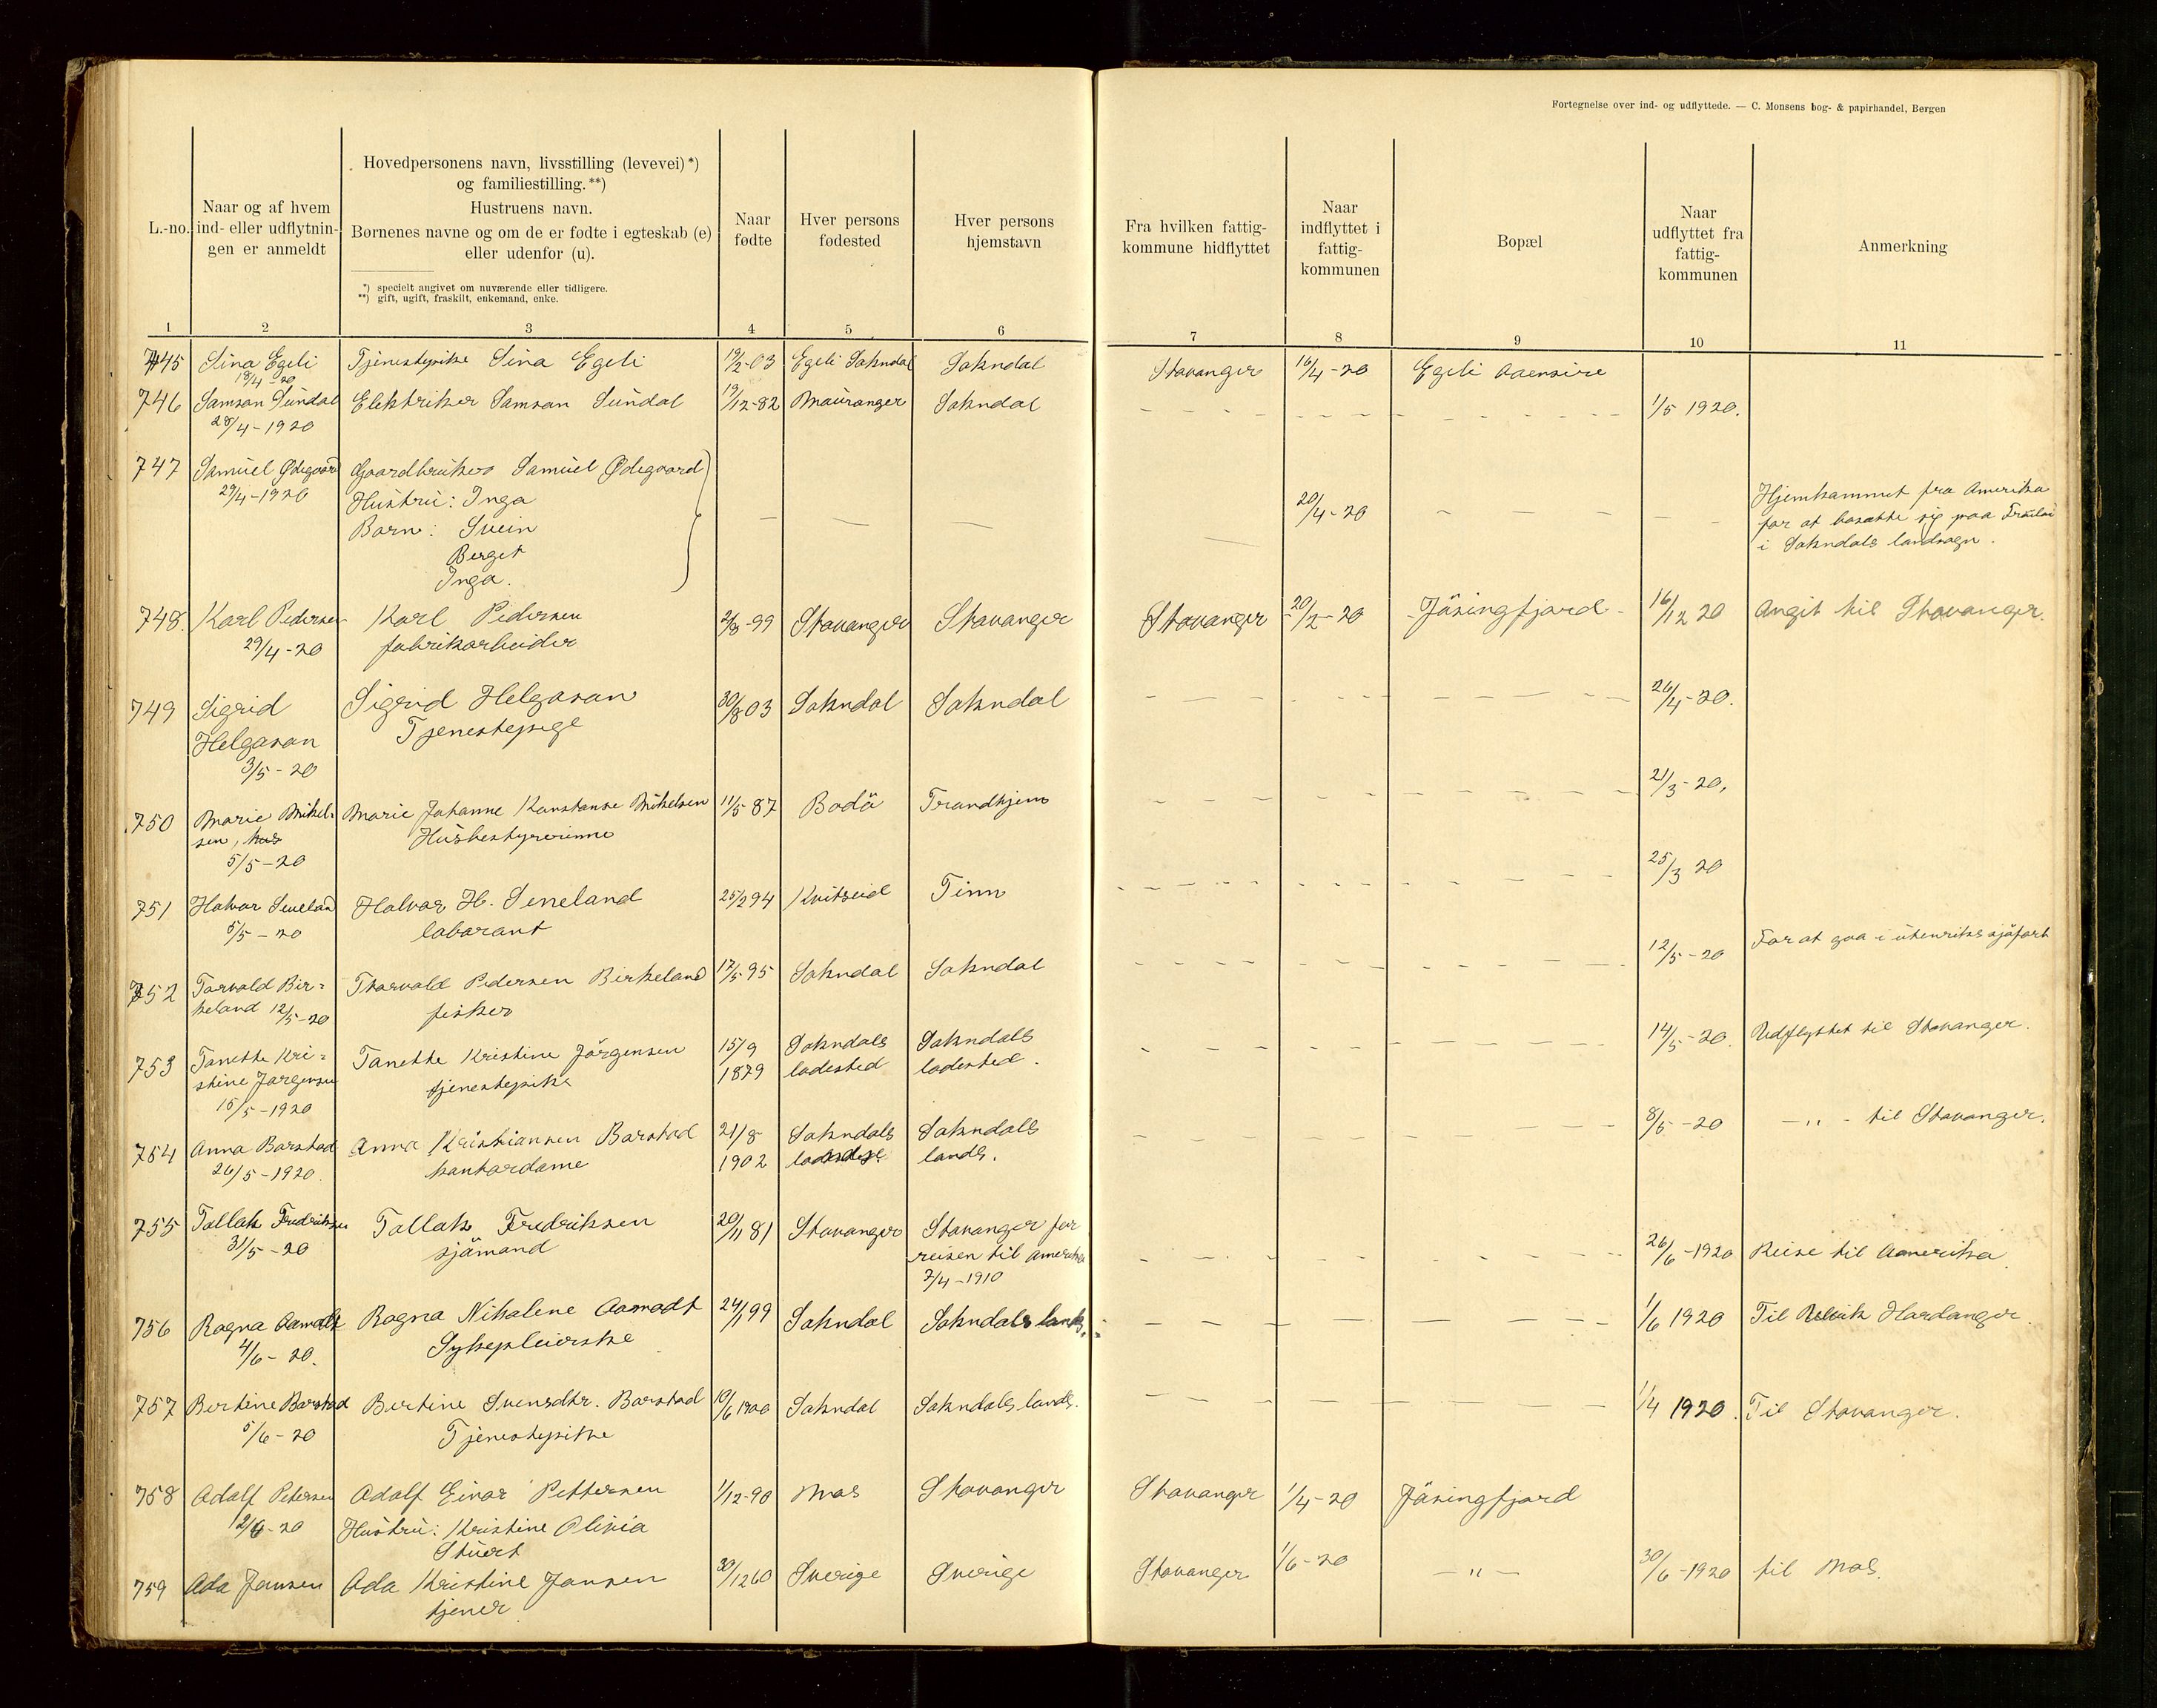 Fortegnelse over ind- og udflyttede. — C. Monsens bog- & papirhandel, Bergen
L.-no.
Naar og af hvem ind- eller udflytnin-gen er anmeldt
Hovedpersonens navn, livsstilling (levevei)*) og familiestilling.**)
Hustruens navn.
Børnenes navne og om de er fødte i egteskab (e) eller udenfor (u).
*) specielt angivet om nuværende eller tidligere.
**) gift, ugift, fraskilt, enkemand, enke.
Naar fødte
Hver persons fødested
Hver persons hjemstavn
Fra hvilken fattig-kommune hidflyttet
Naar indflyttet i fattig-kommunen
Bopæl
Naar udflyttet fra fattig-kommunen
Anmerkning
1 2 3 4 5 6 7 8 9 10 11
745 Sina Egeli Tjenestepike Sina Egeli 19/2-03 Egeli Sokndal Sokndal Stavanger 16/4-20 Egeli Aaensire
19/4-20
746 Samson Sündal Elektriker Samson Sündal 19/12-82 Maüranger Sokndal - - - - 1/5 1920.
28/4-1920
747 Samüel Ødegaard Gaardbruker Samüel Ødegaard
29/4-1920 Hüstrü: Inga — — — — 20/4-20 - — — — - Hjemkommet fra Amerika
Barn: Svein for at bosætte sig paa
Berget i Sokndals landsogn.
Inga.
748. Karl Pedersen Karl Pedersen 2/8-99 Stavanger Stavanger Stavanger 20/2-20 Jösingfjord 16/12 20 Angit til Stavanger.
29/4-20 fabrikarbeider
749 Sigrid Sigrid Helgason 30/8 03 Sokndal Sokndal - - - - 26/4-20.
Helgason Tjenestepige
3/5-20
750 Marie Mikel- Marie Johanne Konstanse Mikelsen 11/5 87 Bodö Trondhjem - - - - 21/3-20,
sen, Hüsbestyrerinne
5/5-20
751 Halvor Seneland Halvor H. Seneland 25/2 94 Kvitseid Tinn - - - - 25/3 20
5/5-20 laborant
752 Torvald Bir= Thorvald Pedersen Birkeland 17/5 95 Sokndal Sokndal - - - - 12/5-20 For at gaa i ütenriks sjöfart
keland 12/5-20 fisker
753 Tanette Kri= Tanette Kristine Jörgensen 15/9 Sokndals Sokndals - - - - 14/5-20. Udflyttet til Stavanger.
stine Jørgensen tjenestepike 1879 ladested ladested.
15/5-1920
754 Anna Barstad Anna Kristiansen Barstad 21/8 Sokndals Sokndals - - - - 8/5-20 — " - til Stavanger.
26/5-1920. kontordame 1902 lands.
755 Tollak Fredriksen Tollak Fredriksen 20/11 81 Stavanger Stavanger før - - - - 26/6-1920 Reise til Amerika.
31/5-20 sjömand reisen til Amerika
7/4-1910
756 Ragna Aamodt Ragna Nikoline Aamodt 24/1 99 Sokndal Sokndals lands. - - - - 1/6 1920 Til Hardanger.
4/6-20. Sykepleierske
757 Bertine Barstad Bertine Svensdtr. Barstad 10/6 1900 Sokndal Sokndals lands. - - - - 1/4 1920. Til Stavanger.
5/6-20 Tjenestepike
758 Adolf Petersen Adolf Einar Pettersen 1/12-90 Mos Stavanger Stavanger 1/4-20 Jösingfjord
12/6-20 Hüstrü: Kristine Olivia
Stüert
759 Ada Jansen Ada Kristine Jansen 30/12 60 Sverige Sverige Stavanger 1/6-20 — " — 30/6-1920 til Mos.
tjener